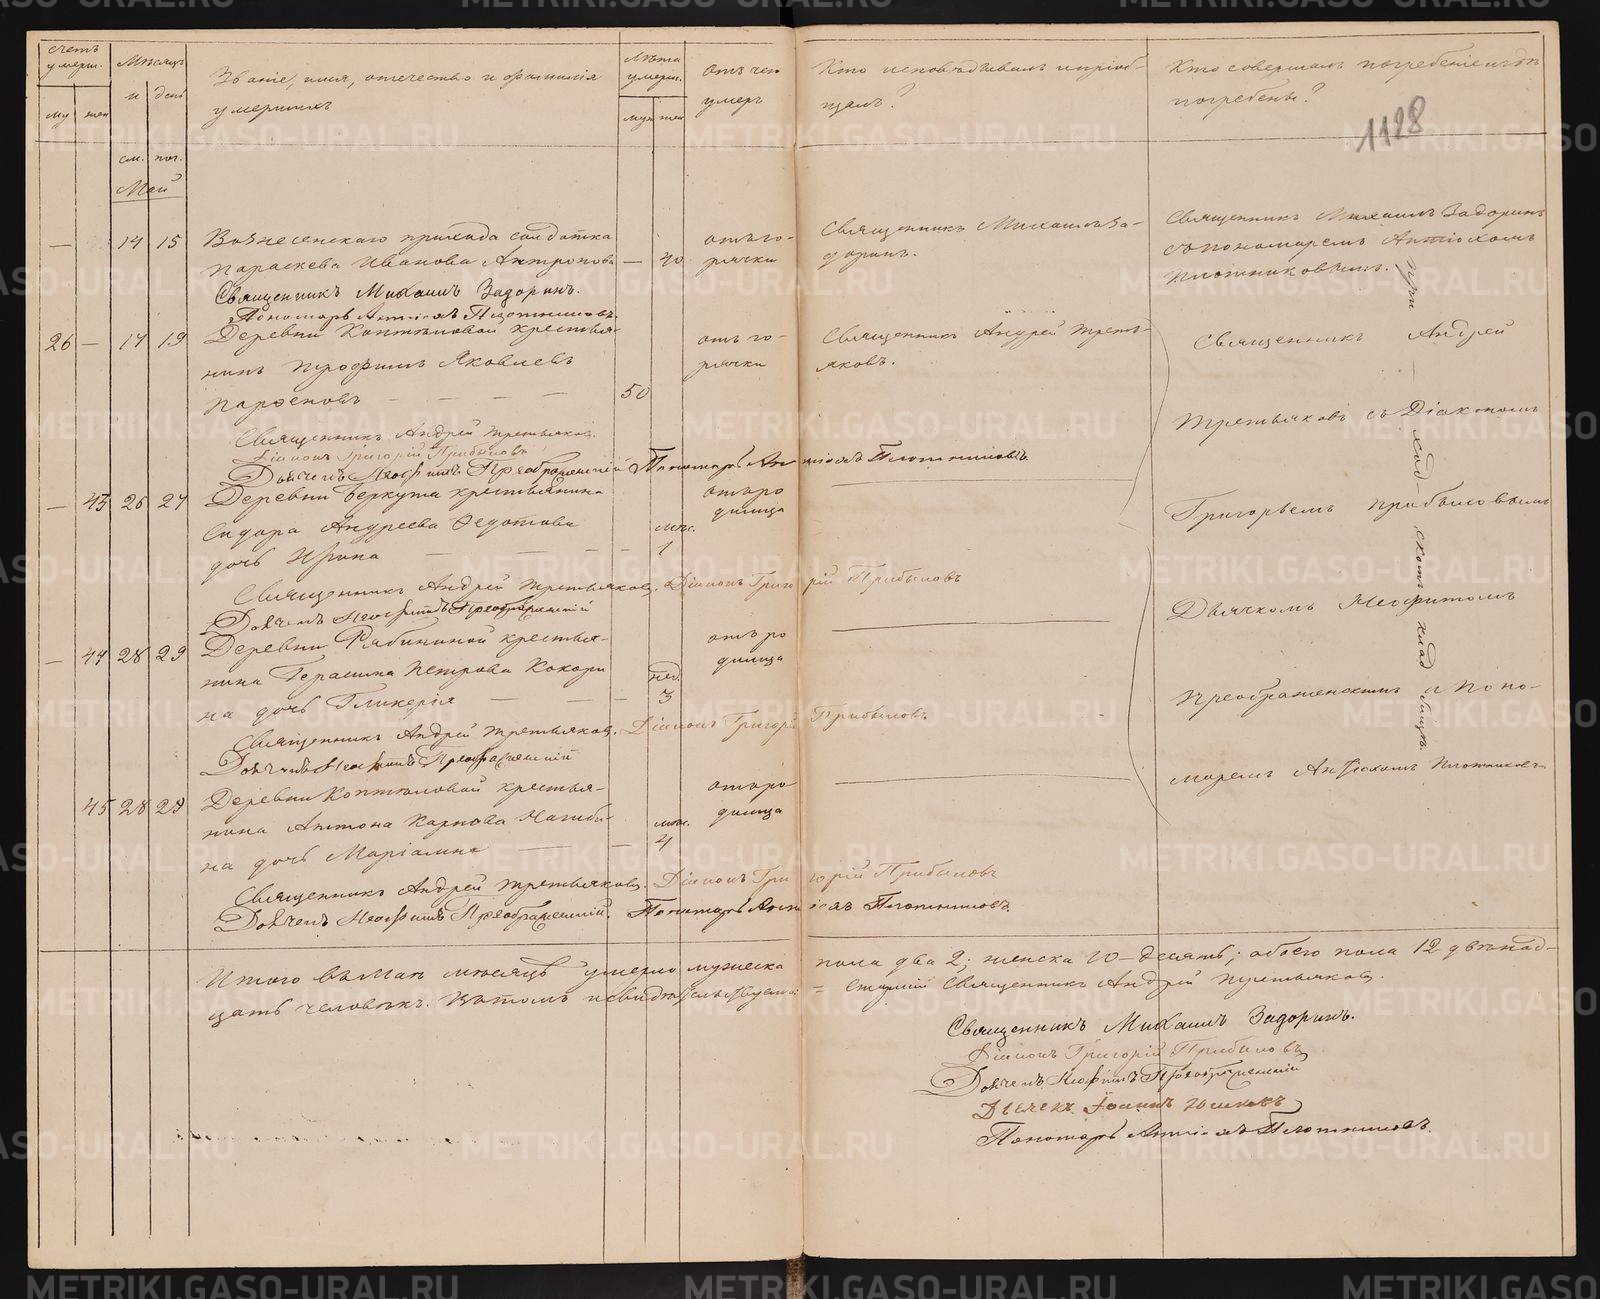 счетъ умерш.
Мѣсяцъ и день
Званіе, имя, отечество и фамилія
умершихъ
Лѣта умерш.
отъ чего
умеръ
Кто исповѣдывалъ и пріоб-
щалъ?
Кто совершалъ погребеніе и гдѣ
погребены?
1128
му жен
муж жен
см. пог.
Май
— 14 15 Вознесенскаго прихода солдатка отъ го- Священникъ Михаилъ За- Священникъ Михаилъ Задоринъ
Параскева Иванова Антропова — 40 рячки доринъ. съ пономаремъ Антіохомъ
Плотниковымъ.
Священникъ Михаилъ Задоринъ.
Пономарь Антіохъ Плотниковъ.
26 — 17 19 Деревни Коптяловой крестья- отъ го- Священникъ Андрей Треть- Священникъ Андрей
нинъ Трофимъ Яковлевъ рячки яковъ.
Парѳеновъ — — — — 50 Третьяковъ съ Діакономъ
Священникъ Андрей Третьяковъ.
Діаконъ Григорій Прибыловъ
Дьячекъ Неофитъ Преображенскій Пономарь Антіохъ Плотниковъ.
— 43 26 27 Деревни Беркута крестьянина отъ ро
Сидора Андреева Ѳедотова мѣс. димца Григорьемъ Прибыловымъ
дочь Ирина — — — — 1
Священникъ Андрей Третьяковъ. Діаконъ Григорій Прибыловъ
Дьячекъ Неофитъ Преображенскій Дьячкомъ Неофитомъ
— 44 28 29 Деревни Рябининой крестья- отъ ро
нина Герасима Петрова Кокори нед. димца
на дочь Гликерія — — — 3 Преображенскимъ и Поно-
Священникъ Андрей Третьяковъ. Діаконъ Григорій Прибыловъ
Дьячекъ Неофитъ Преображенскій маремъ Антіохомъ Плотниковъ
45 28 29 Деревни Коптяловой крестья- отъ ро
нина Антона Карпова Нагиби- мѣс. димца
на дочь Маріамна — — 4
Священникъ Андрей Третьяковъ. Діаконъ Григорій Прибыловъ
Дьячекъ Неофитъ Преображенскій. Пономарь Антіохъ Плотниковъ.
При ход скомъ клад бищѣ.
Итого въ Маѣ мѣсяцѣ умерло мужеска пола два 2; женска 10 – десять; обоего пола 12 двѣнад-
цать человѣкъ. Въ томъ и свидѣтельствуемъ: – Старшій Священникъ Андрей Третьяковъ.
Священникъ Михаилъ Задоринъ.
Діаконъ Григорій Прибыловъ
Дьячекъ Неофитъ Преображенскій
Дьячекъ Іоаннъ
Пономарь Антіохъ Плотниковъ.
METRIKI.GASO-URAL.RU